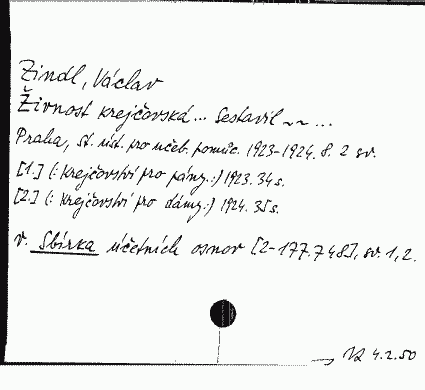 Zindl, Václav
Živnost krejčovská... Sestavil ~~ ...
Praha, st. úst. pro učeb. pomůc. 1923-1924. 8. 2 sv.
[1.] (: Krejčovství pro pány :) 1923. 34 s.
[2.] (: Krejčovství pro dámy :) 1924. 35 s.
v. Sbírka účetních osnov [2-177.748], sv. 1, 2.
4.2.50